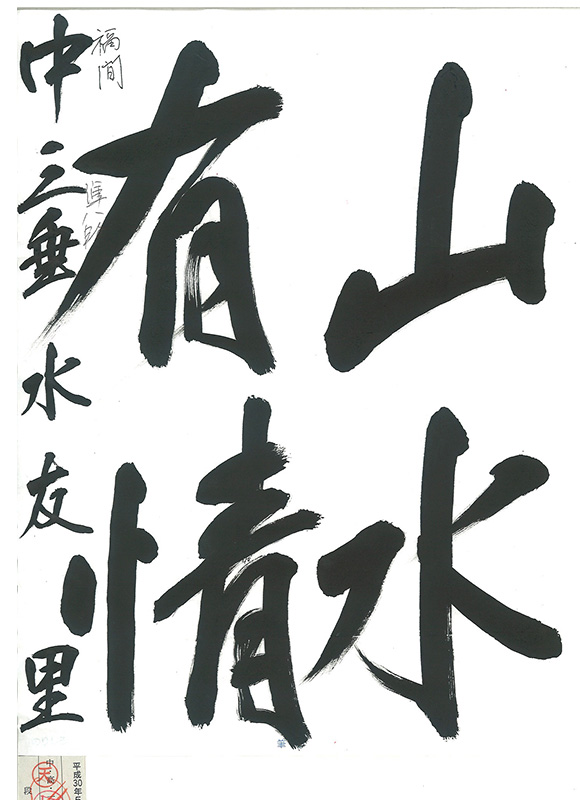 山水
有情
中三垂水友里
福間
準八段
筆
平成30年5
中
段
天